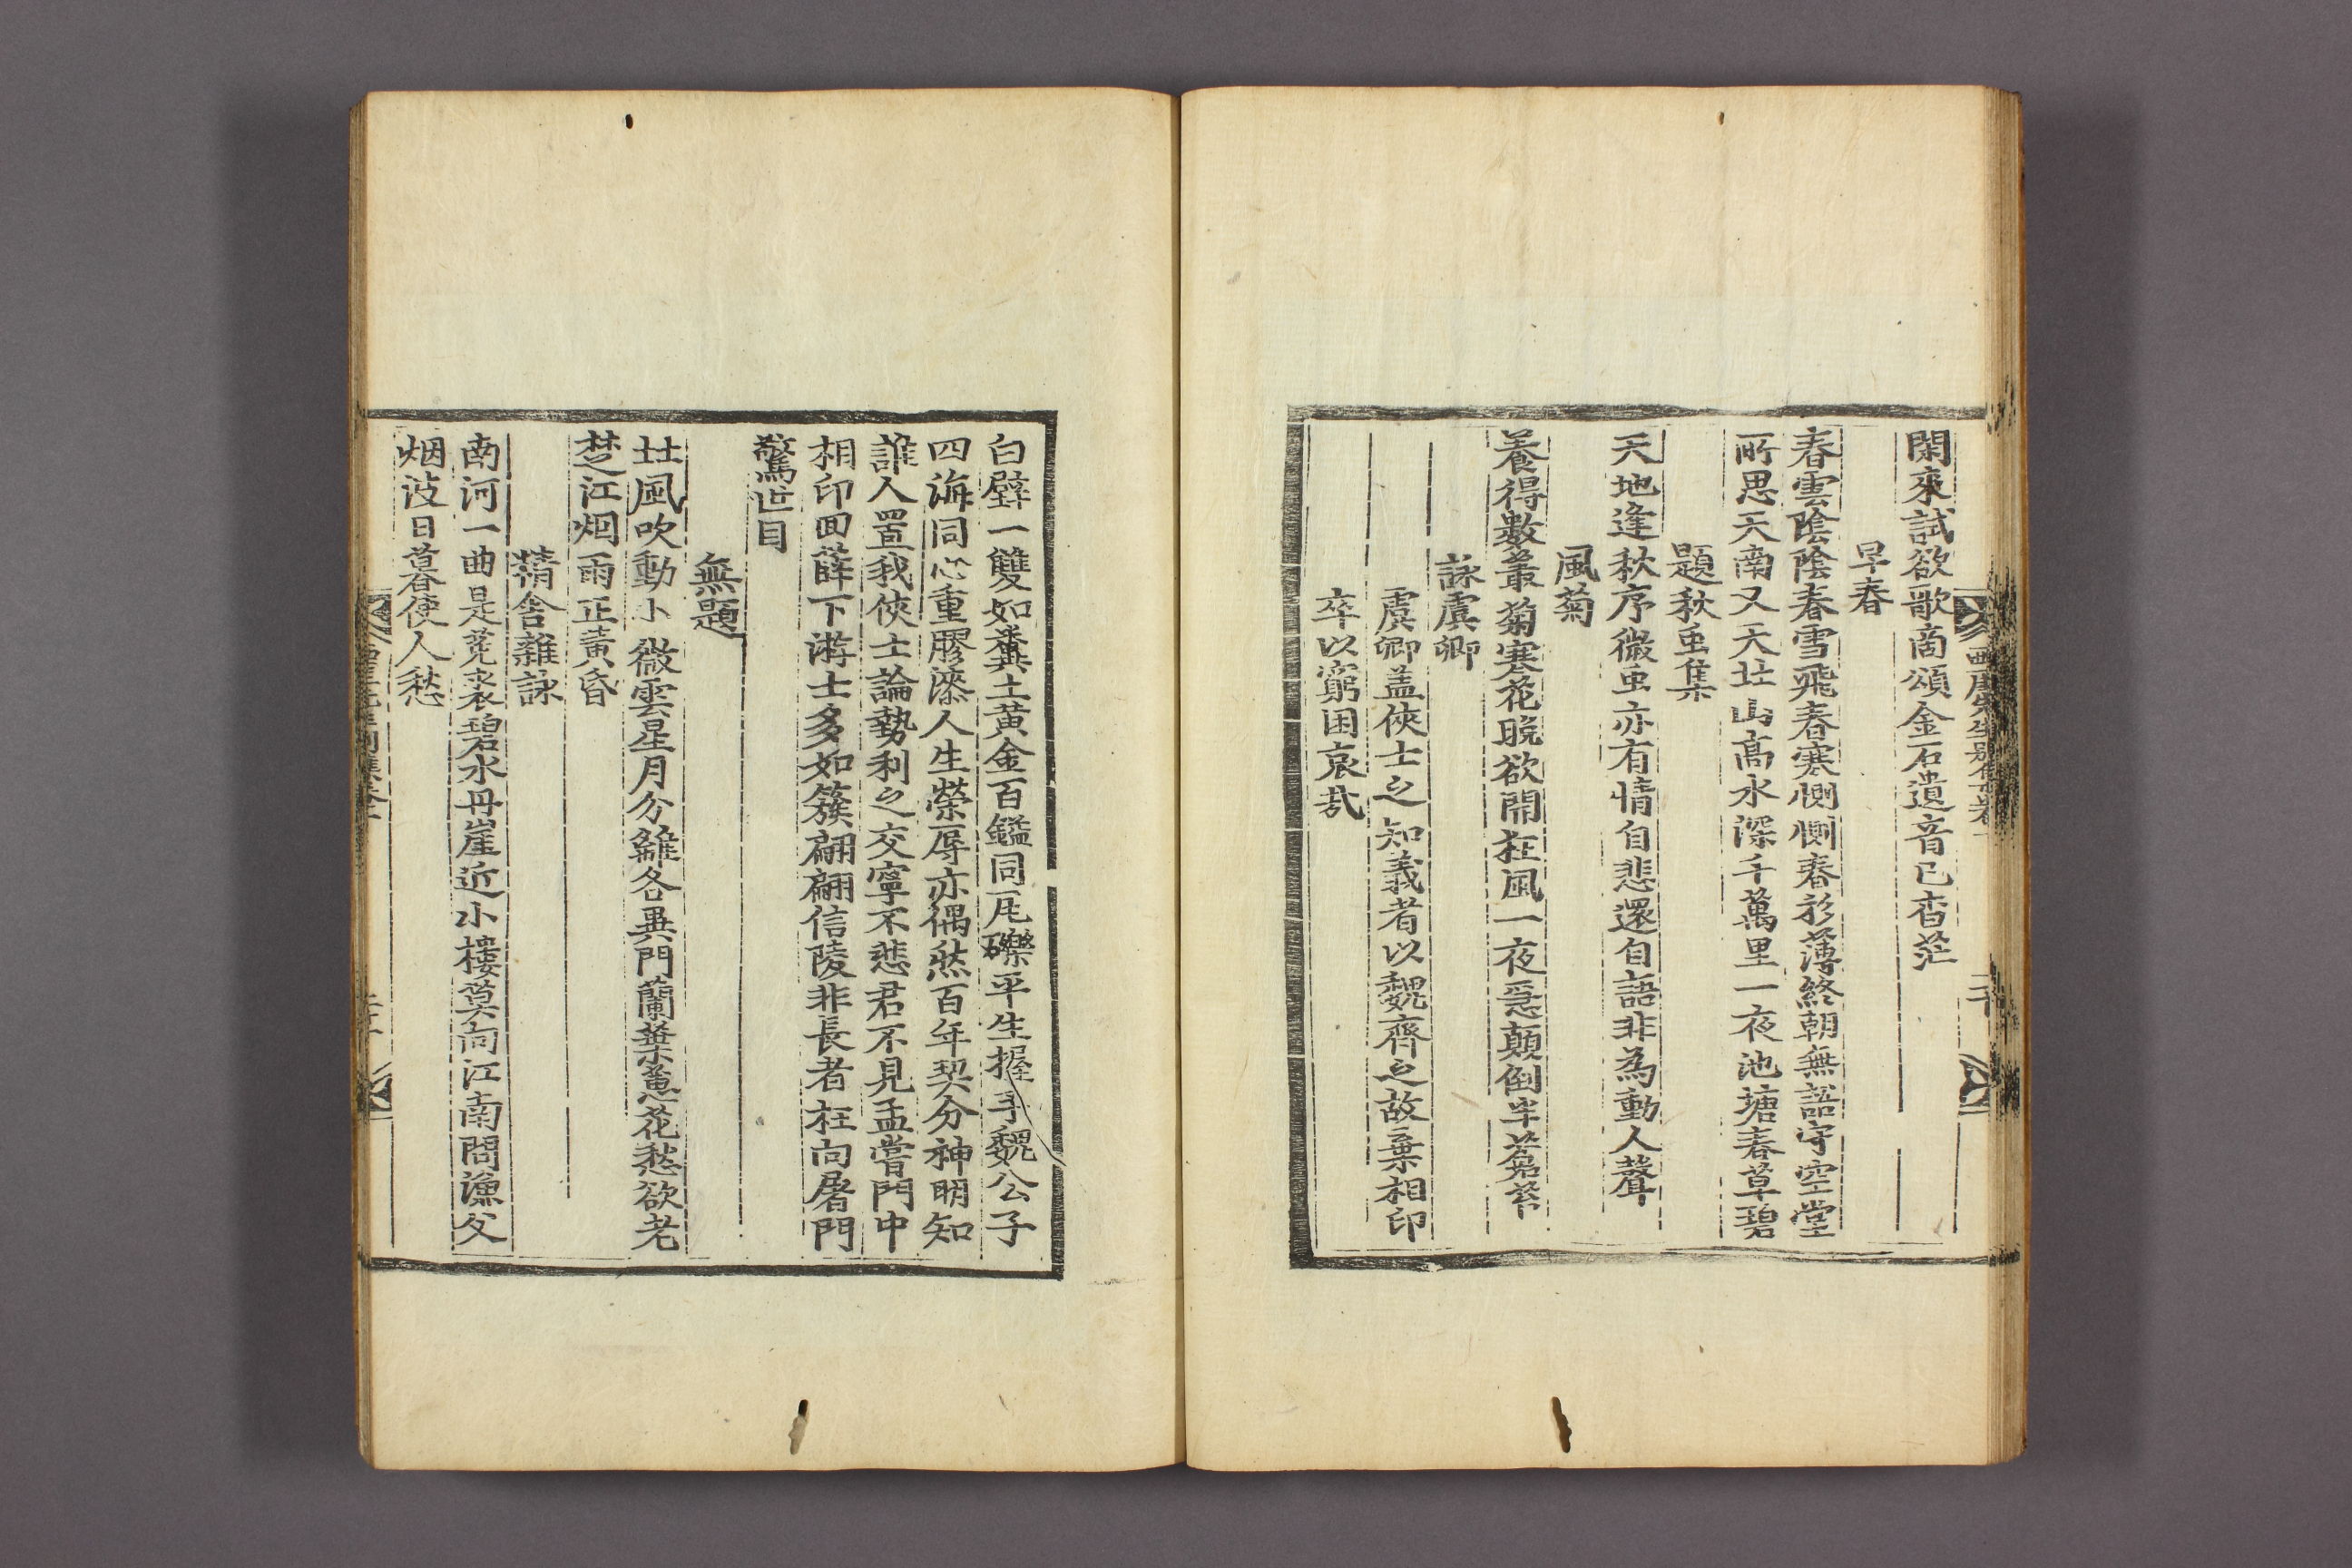 閑來試欲歌商頌金石遺音已杳茫
早春
春雲陰陰春雪飛春寒惻惻春衫薄終朝無語守空堂
所思天南又天北山高水深千萬里一夜池塘春草碧
題秋虫集
天地逢秋序微虫亦有情自悲還自語非為動人聲
風菊
養得數叢菊寒花晩欲開狂風一夜惡顛倒半蒼苔
詠虞卿
虞卿盖俠士之知義者以魏齊之故棄相印
卒以窮困哀哉
白璧一雙如糞土黃金百鎰同瓦礫平生握手魏公子
四海同心重膠漆人生榮辱亦偶然百年契分神明知
誰人置我俠士論勢利之交寧不悲君不見孟嘗門中
相印回薛下游士多如簇翩翩信陵非長者枉向屠門
驚世目
無題
北風吹動小微雲星月分離各異門蘭葉蕙花愁欲老
楚江烟雨正黃昏
精舍雜詠
南河一曲是菟裘碧水丹崖近小樓莫向江南問漁父
烟波日暮使人愁